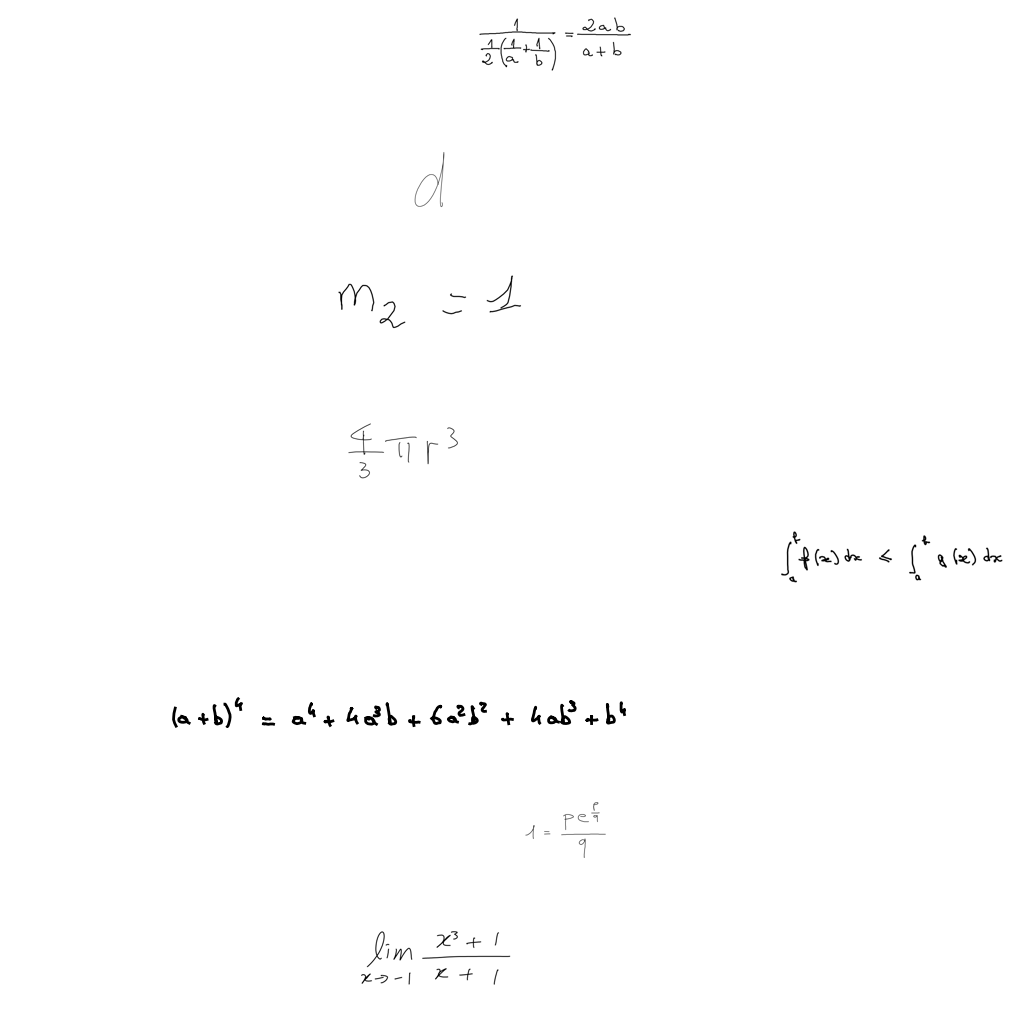 \frac{1}{\frac{1}{2}(\frac{1}{a}+\frac{1}{b})}=\frac{2ab}{a+b}
d
m_2 = 1
\frac{4}{3}πr^3
\int_a^b f(x)dx ≤ \int_a^b g(x)dx
(a+b)^4 = a^4 + 4a^3b + 6a^2b^2 + 4ab^3 + b^4
1=\frac{pe^{\frac{p}{q}}}{q}
\lim_{x→-1} \frac{x^3+1}{x+1}